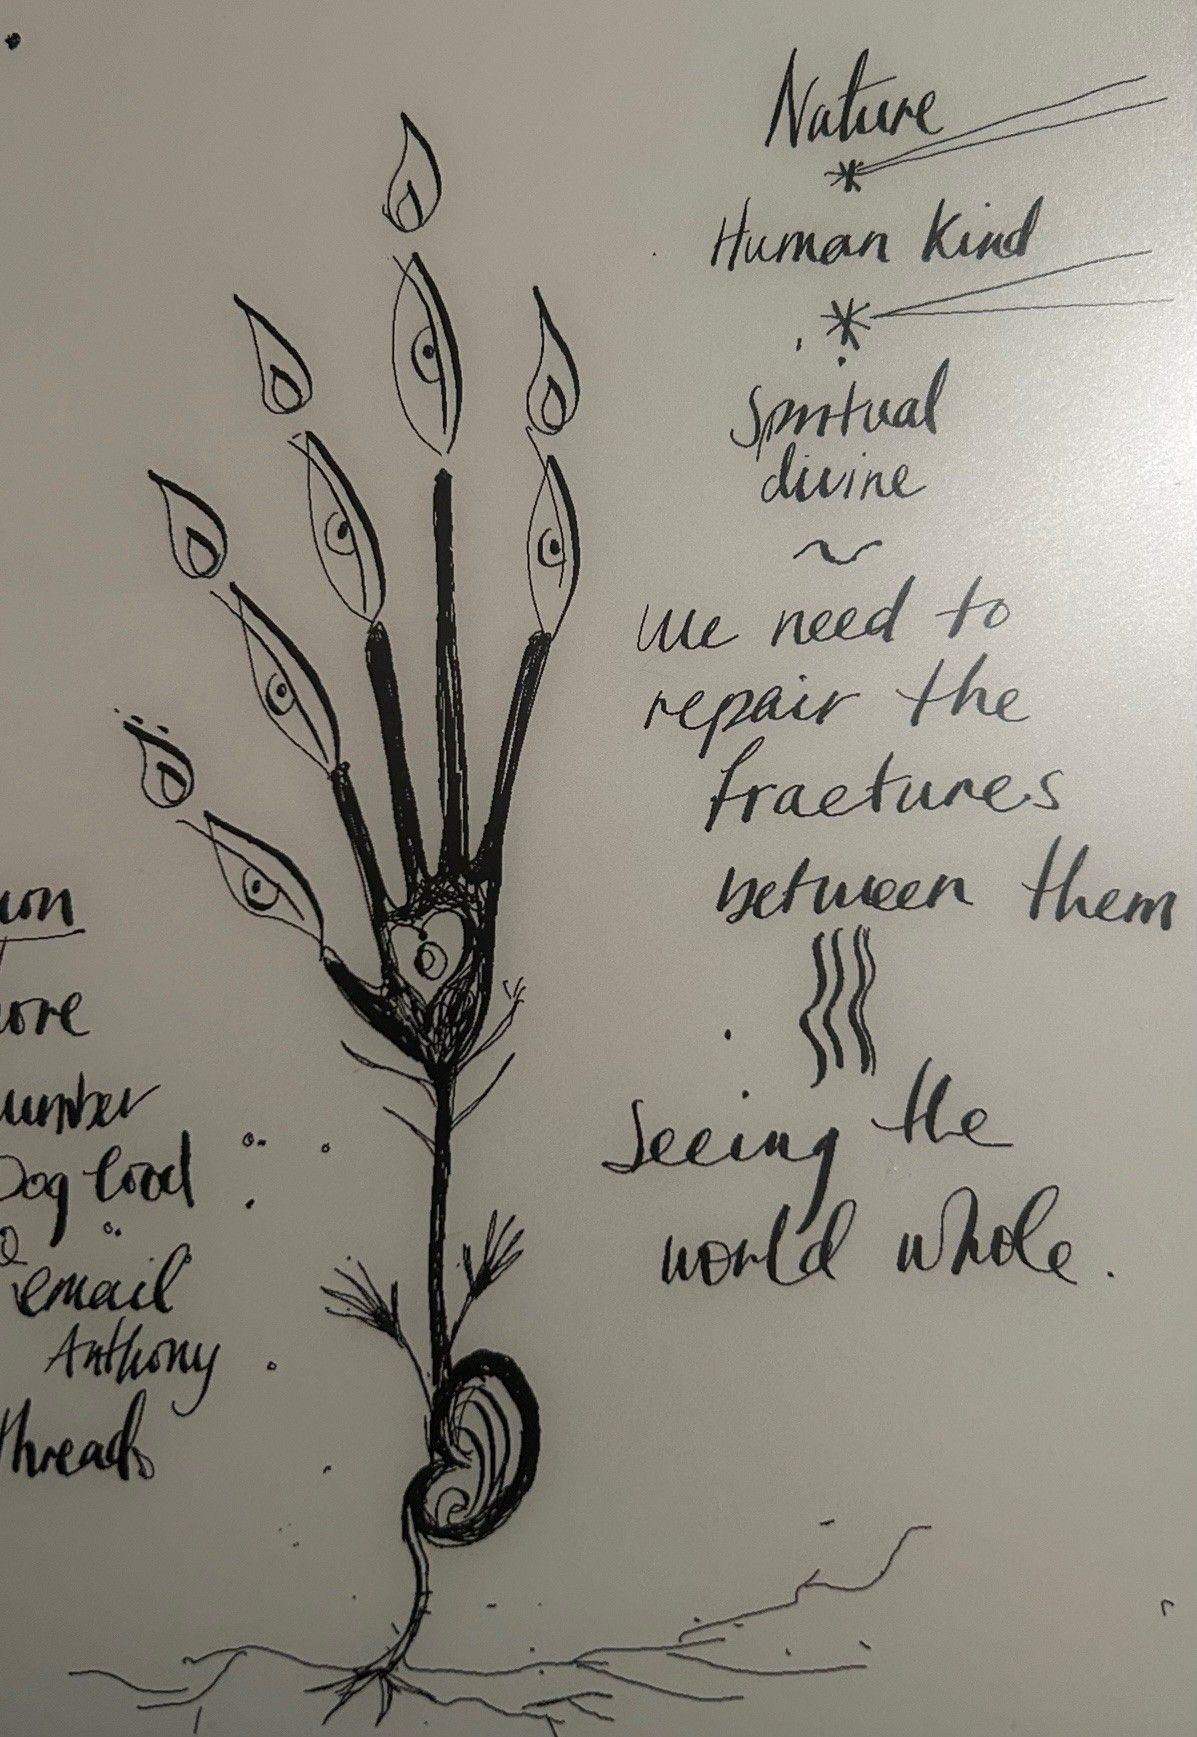 Nature
Human Kind
Spiritual
divine
We need to
repair the
fractures
between them
Seeing the
world whole.
Dog food
email
Anthony
threads